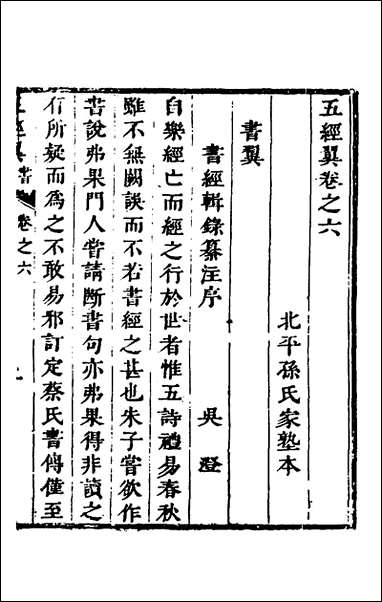 五經翼卷之六
北平孫氏家塾本
書翼
書經輯錄纂注序　吳澄
自樂經亡而經之行於世者惟五詩禮易春秋
雖不無闕誤而不若書經之甚也朱子嘗欲作
書說弗果門人嘗請斷書句亦弗果得非讀之
有所疑而爲之不敢易邪訂定蔡氏書傳僅至
五經翼 書 卷之六